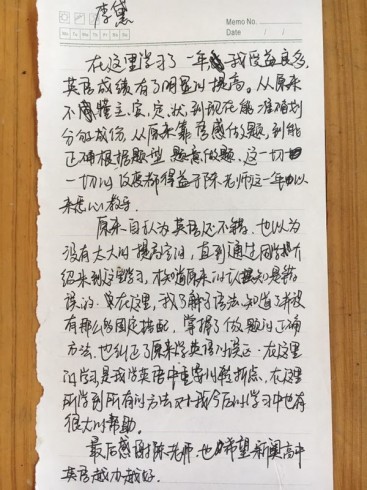 李黛
Memo No.
Mo Tu We Th Fr Sa Su
Date / /
在这里学习了一年,我受益良多,
英语成绩有了明显的提高。从原来
不懂主、宾、定、状,到现在能准确划
分句成份,从原来靠语感做题,到能
正确根据题型、题意做题,这一切
一切的改变都得益于陈老师这一年以
来悉心教导。
原来自认为英语还不错,也以为
没有太大的提高空间,直到通过同学介
绍来到这里学习,才知道原来的认知是错
误的。来在这里,我了解了语法,知道了并没
有那么的固定搭配,掌握了做题的正确
方法,也纠正了原来学英语的误区。在这里
的学习是我学英语中重要的转折点,在这里
所学到所有的方法对我今后的学习中也有
很大的帮助。
最后感谢陈老师,也希望新澳高中
英语越办越好。